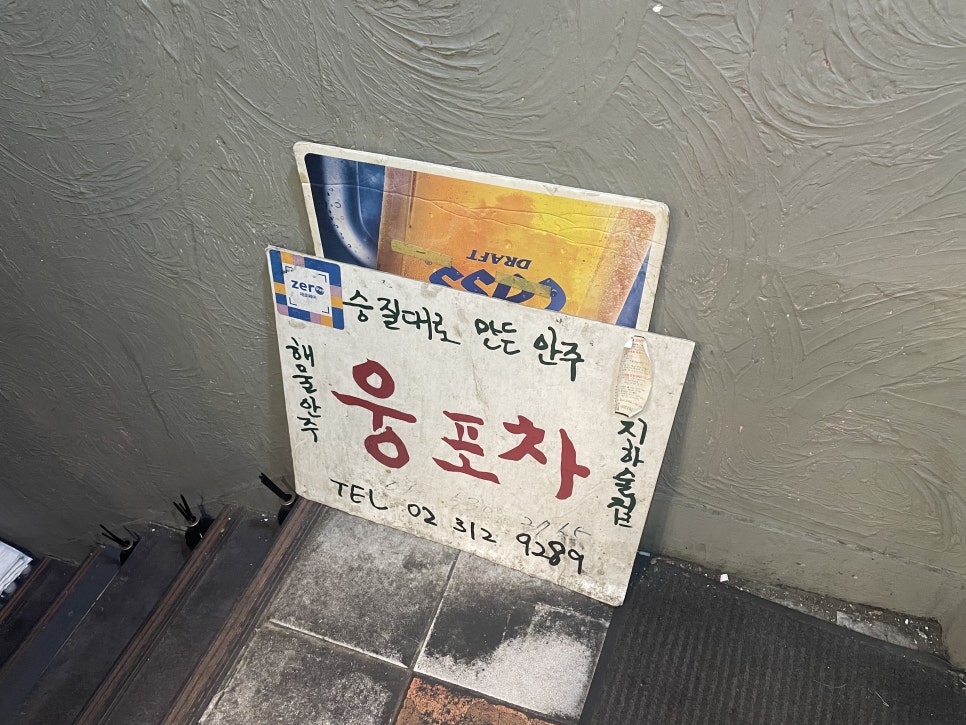 DRAFT
cass
zero
제로페이
승질대로 만든 안주
해물안주
웅포차
지하술집
TEL 02 312 9289